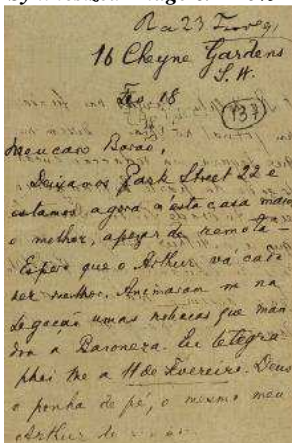 R a 23 Fever,
16 Cheyne Gardens
S. W.
Fev. 18
(137)
Meu caro Barão,
Deixamos Park Street 22 e
estamos agora n'esta casa mais
o melhor, apezar de remota –
Espero que o Arthur va cada
ser melhor. Animaram m na
legação umas noticias que man
dou a Baroneza. Eu telegra
phei lhe a 11 de Fevereiro. Deus
o ponha de pé, o mesmo meu
Arthur